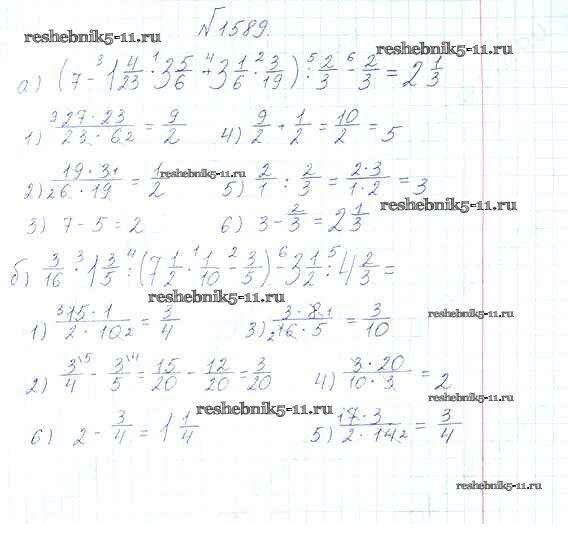 №1589.
reshebnik5-11.ru reshebnik5-11.ru
а) (7 - ³1 4/23 ·¹ 3 5/6 +⁴ 3 1/6 ·² 3/19) :⁵ 2/3 -⁶ 2/3 = 2 1/3
1) ⁹27·23/23·62 = 9/2 4) 9/2 + 1/2 = 10/2 = 5
2) 19·31/26·19 = 1/2 reshebnik5-11.ru 5) 2/1 : 2/3 = 2·3/1·2 = 3
reshebnik5-11.ru
3) 7 - 5 = 2 6) 3 - 2/3 = 2 1/3
б) 3/16 ·³ 1 3/5 :⁴ (7 1/2 ·¹ 1/10 -² 3/5) -⁶ 3 1/2 :⁵ 4 2/3 =
reshebnik5-11.ru
1) ³15·1/2·10₂ = 3/4 3) 3·8 1/₂16·5 = 3/10 reshebnik5-11.ru
2) 3\5/4 - 3\4/5 = 15/20 - 12/20 = 3/20 4) 3·20/10·3 = 2
reshebnik5-11.ru reshebnik5-11.ru
6) 2 - 3/4 = 1 1/4 5) 17·3/2·14₂ = 3/4
reshebnik5-11.ru